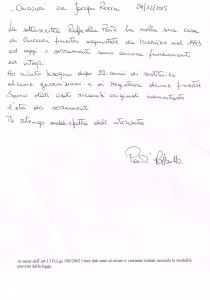 Chiavari Via Jacopo Rocca 29/12/2015
La sottoscritta Raffaella Podi ha nella sua casa
di Chiavari finestre acquistate da nel 1993
ed oggi i serramenti sono ancora funzionanti
ed integri.
Ho avuto bisogno dopo 22 anni di sostituire
alcune guarnizioni e di registrare alcune finestre
Sono stati usati ricambi originali nonostante
l'età dei serramenti
Mi ritengo soddisfatta dell'intervento
Raffaella
Ai sensi dell'art.13 D.Lgs 196/2003 i tuoi dati sono al sicuro e verranno trattati secondo le modalità
previste dalla legge.